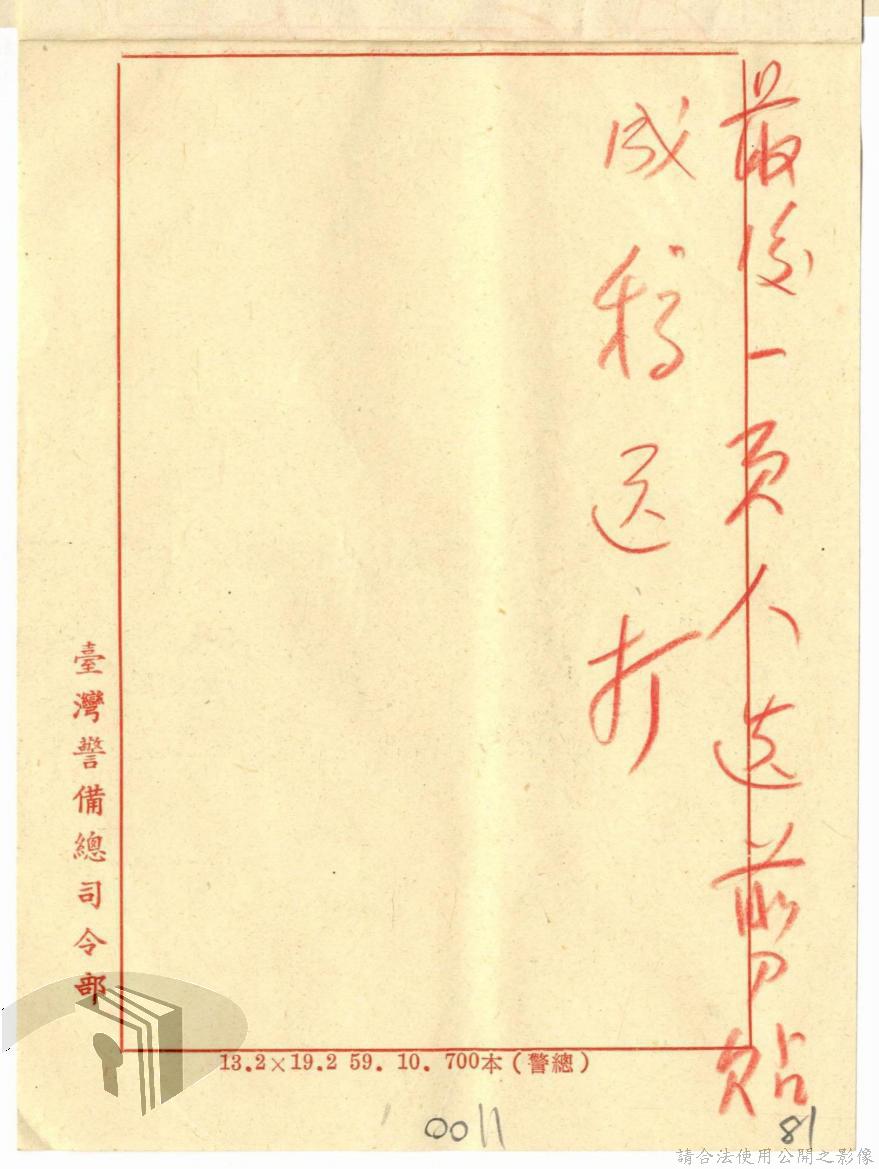 最後一頁人選剪貼
成稿送打
臺灣警備總司令部
13.2×19.2 59. 10. 700本(警總)
0011
81
請合法使用公開之影像